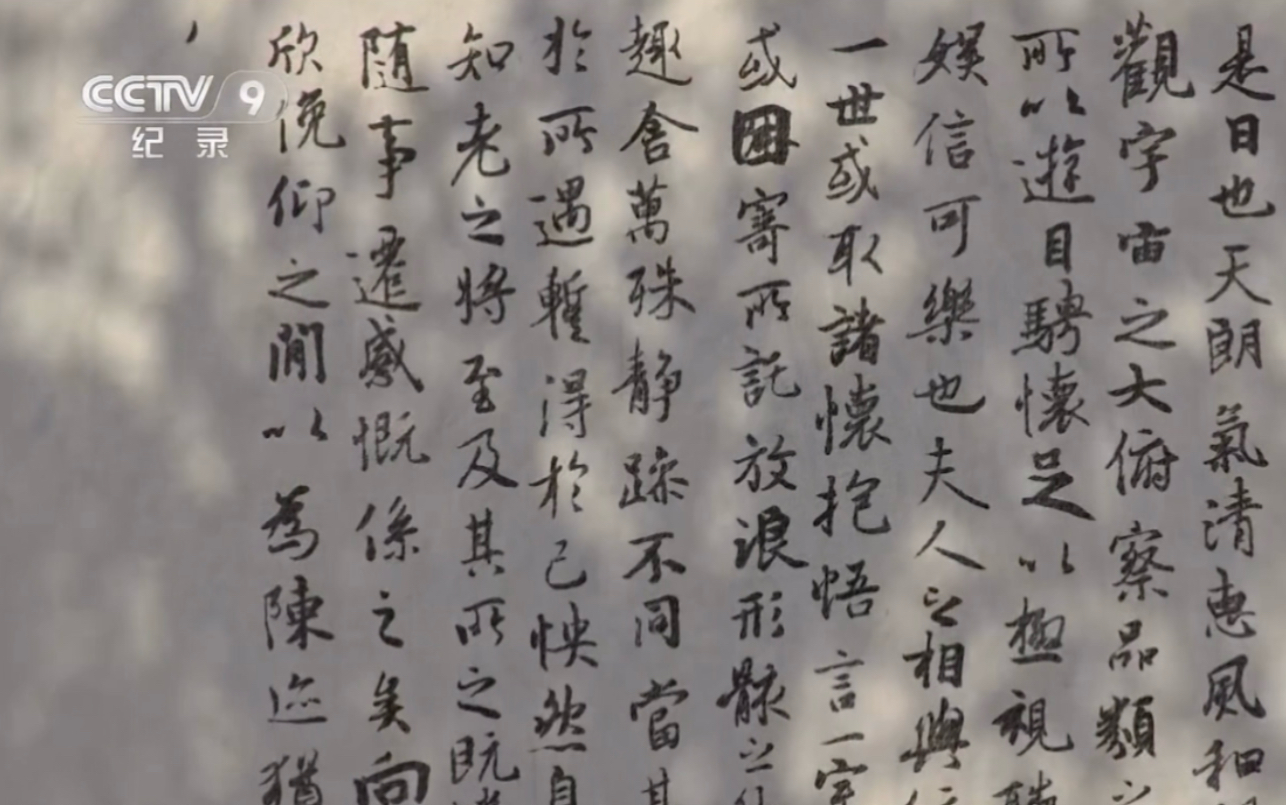 是日也天朗氣清惠風和
觀宇宙之大俯察品類
所以遊目騁懷足以極視聽
娛信可樂也夫人之相與
一世或取諸懷抱悟言一室
或因寄所託放浪形骸之
趣舍萬殊静躁不同當其
於所遇暫得於己怏然自
知老之將至及其所之既
隨事遷感慨係之矣向
欣俛仰之閒以為陳迹猶
CCTV 9
纪录